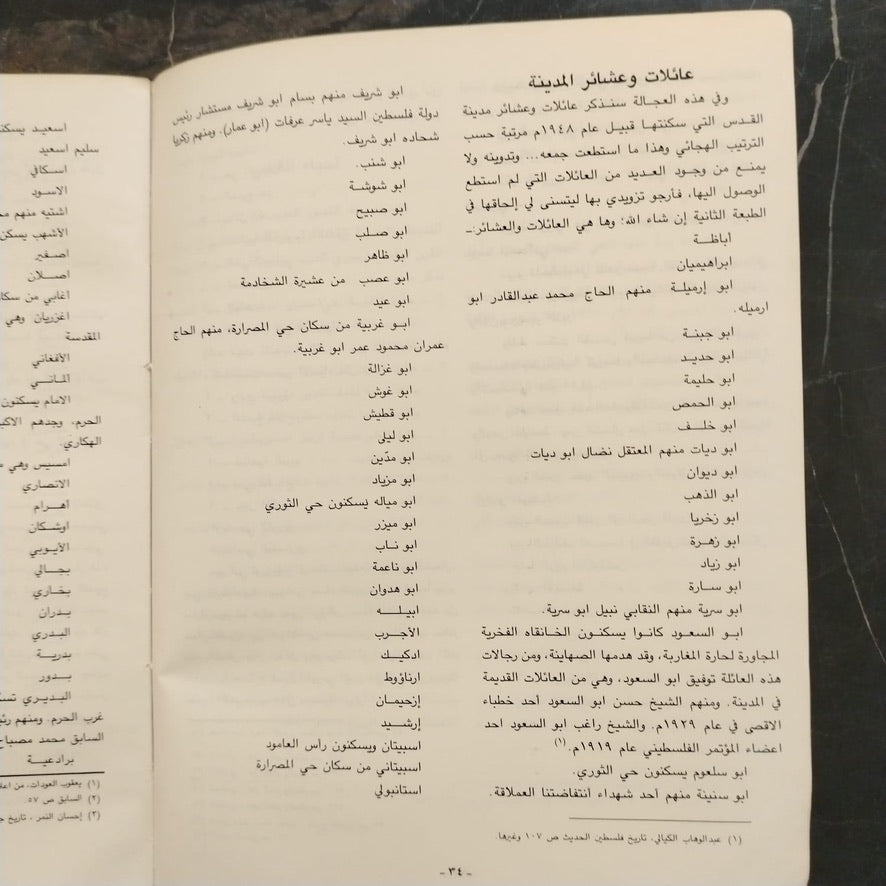 عائلات وعشائر المدينة
وفي هذه العجالة سنذكر عائلات وعشائر مدينة
القدس التي سكنتها قبيل عام ١٩٤٨م مرتبة حسب
الترتيب الهجائي وهذا ما استطعت جمعه... وتدوينه ولا
يمنع من وجود العديد من العائلات التي لم استطع
الوصول اليها، فأرجو تزويدي بها ليتسنى لي إلحاقها في
الطبعة الثانية إن شاء الله؛ وها هي العائلات والعشائر:ـ
أباظـة
ابراهيميان
ابو إرميلة منهم الحاج محمد عبدالقادر ابو
ارميله.
ابو جبنة
ابو حديـد
ابو حليمة
ابو الحمص
ابو خلـف
ابو ديات منهم المعتقل نضال ابو ديات
ابو ديوان
ابو الذهب
ابو زخريا
ابو زهـرة
ابو زياد
ابو سـارة
ابو سرية منهم النقابي نبيل ابو سرية.
ابـو السعود كانـوا يسكنون الخـانقاه الفخرية
المجاورة لحارة المغاربة، وقد هدمها الصهاينة، ومن رجالات
هذه العائلة توفيق ابو السعود، وهي من العائلات القديمة
في المدينة. ومنهم الشيخ حسن ابو السعود أحد خطباء
الاقصى في عام ١٩٢٩م. والشيخ راغب ابو السعود احد
اعضاء المؤتمر الفلسطيني عام ١٩١٩م.(١)
ابو سلعوم يسكنون حي الثوري.
ابو سنينة منهم أحد شهداء انتفاضتنا العملاقة.
(١) عبدالوهاب الكيالي، تاريخ فلسطين الحديث ص ١٠٧ وغيرها.
ابو شريف منهم بسام ابو شريف مستشار رئيس
دولة فلسطين السيد ياسر عرفات (ابو عمار). ومنهم زكريا
شحاده ابو شريف.
ابو شنب.
ابو شوشـة
ابو صبيح
ابو صـلب
ابو ظاهر
ابو عصب من عشيرة الشخادمة
ابو عيد
ابـو غربية من سكان حي المصرارة، منهم الحاج
عمران محمود عمر ابو غربية.
ابو غزالة
ابو غوش
ابو قطيش
ابو ليلى
ابو مدّين
ابو مزياد
ابو مياله يسكنون حي الثوري
ابو ميزر
ابو نـاب
ابو ناعمة
ابو هدوان
ابيلـــه
الأجـرب
ادكيـك
ارناؤوط
إزحيمـان
إرشيـد
اسبيتان ويسكنون رأس العامود
اسبيتاني من سكان حي المصرارة
استانبولي
- ٣٤ -
اسعيـد يسكنـ
سليم اسعيد
اسـكافي
الاسـود
اشتيه منهم
الأشهب يسكن
اصـفير
اصـلان
اغابي من سكا
اغزريان وهي
المقدسة
الأفغاني
المـاني
الامام يسكنون
الحرم، وجدهم الاكبـ
الهكاري.
امسيس وهي
الانصاري
أهـرام
اوشـكان
الأيـوبي
بجـالي
بخـاري
بـدران
البـدري
بدريـة
بـدور
البـديـري
غرب الحرم. ومنهم
السابق محمد مصباح
برادعيـة
(١) يعقوب العودات، من
(٢) السابق ص ٥٧.
(٣) إحسان النمر، تاريخ